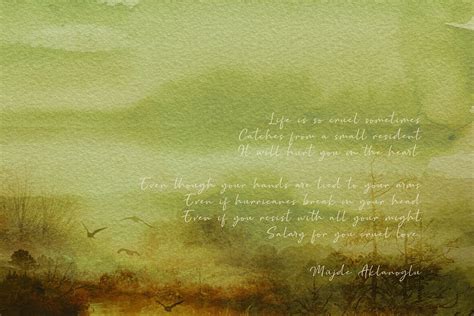 Life is so cruel sometimes
Catches from a small resident
It will hurt you on tha heart
Even though your hands are tied to your arms
Even if hurricanes break on your head
Even if you resist with all your might
Salary for you cruel love.
Müjde Aklanoglu